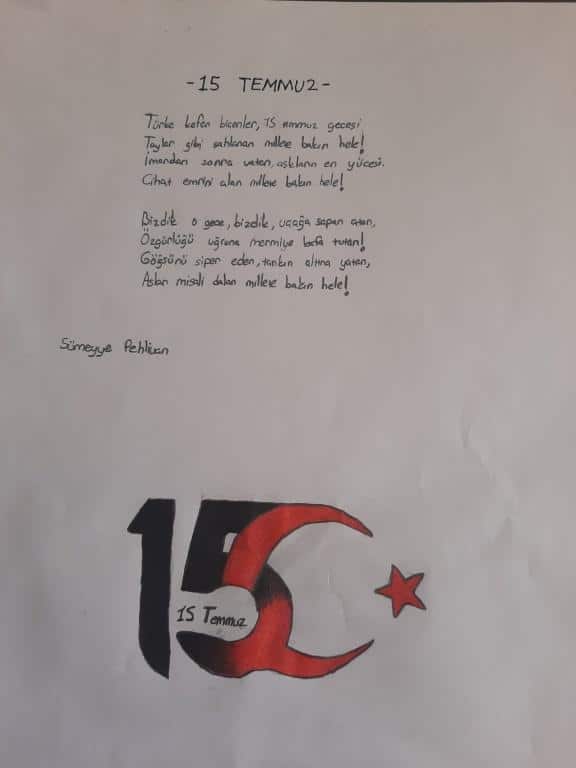 -15 TEMMUZ-
Türke kefen biçenler, 15 temmuz gecesi
Taylar gibi şahlanan millete bakın hele!
İmandan sonra vatan, aşkların en yücesi.
Cihat emrini alan millete bakın hele!
Bizdik o gece, bizdik, uçağa sapan atan,
Özgürlüğü uğruna mermiye kafa tutan!
Göğsünü siper eden, tankın altına yatan,
Aslan misali dalan millete bakın hele!
Sümeyye Pehlivan
15
15 Temmuz